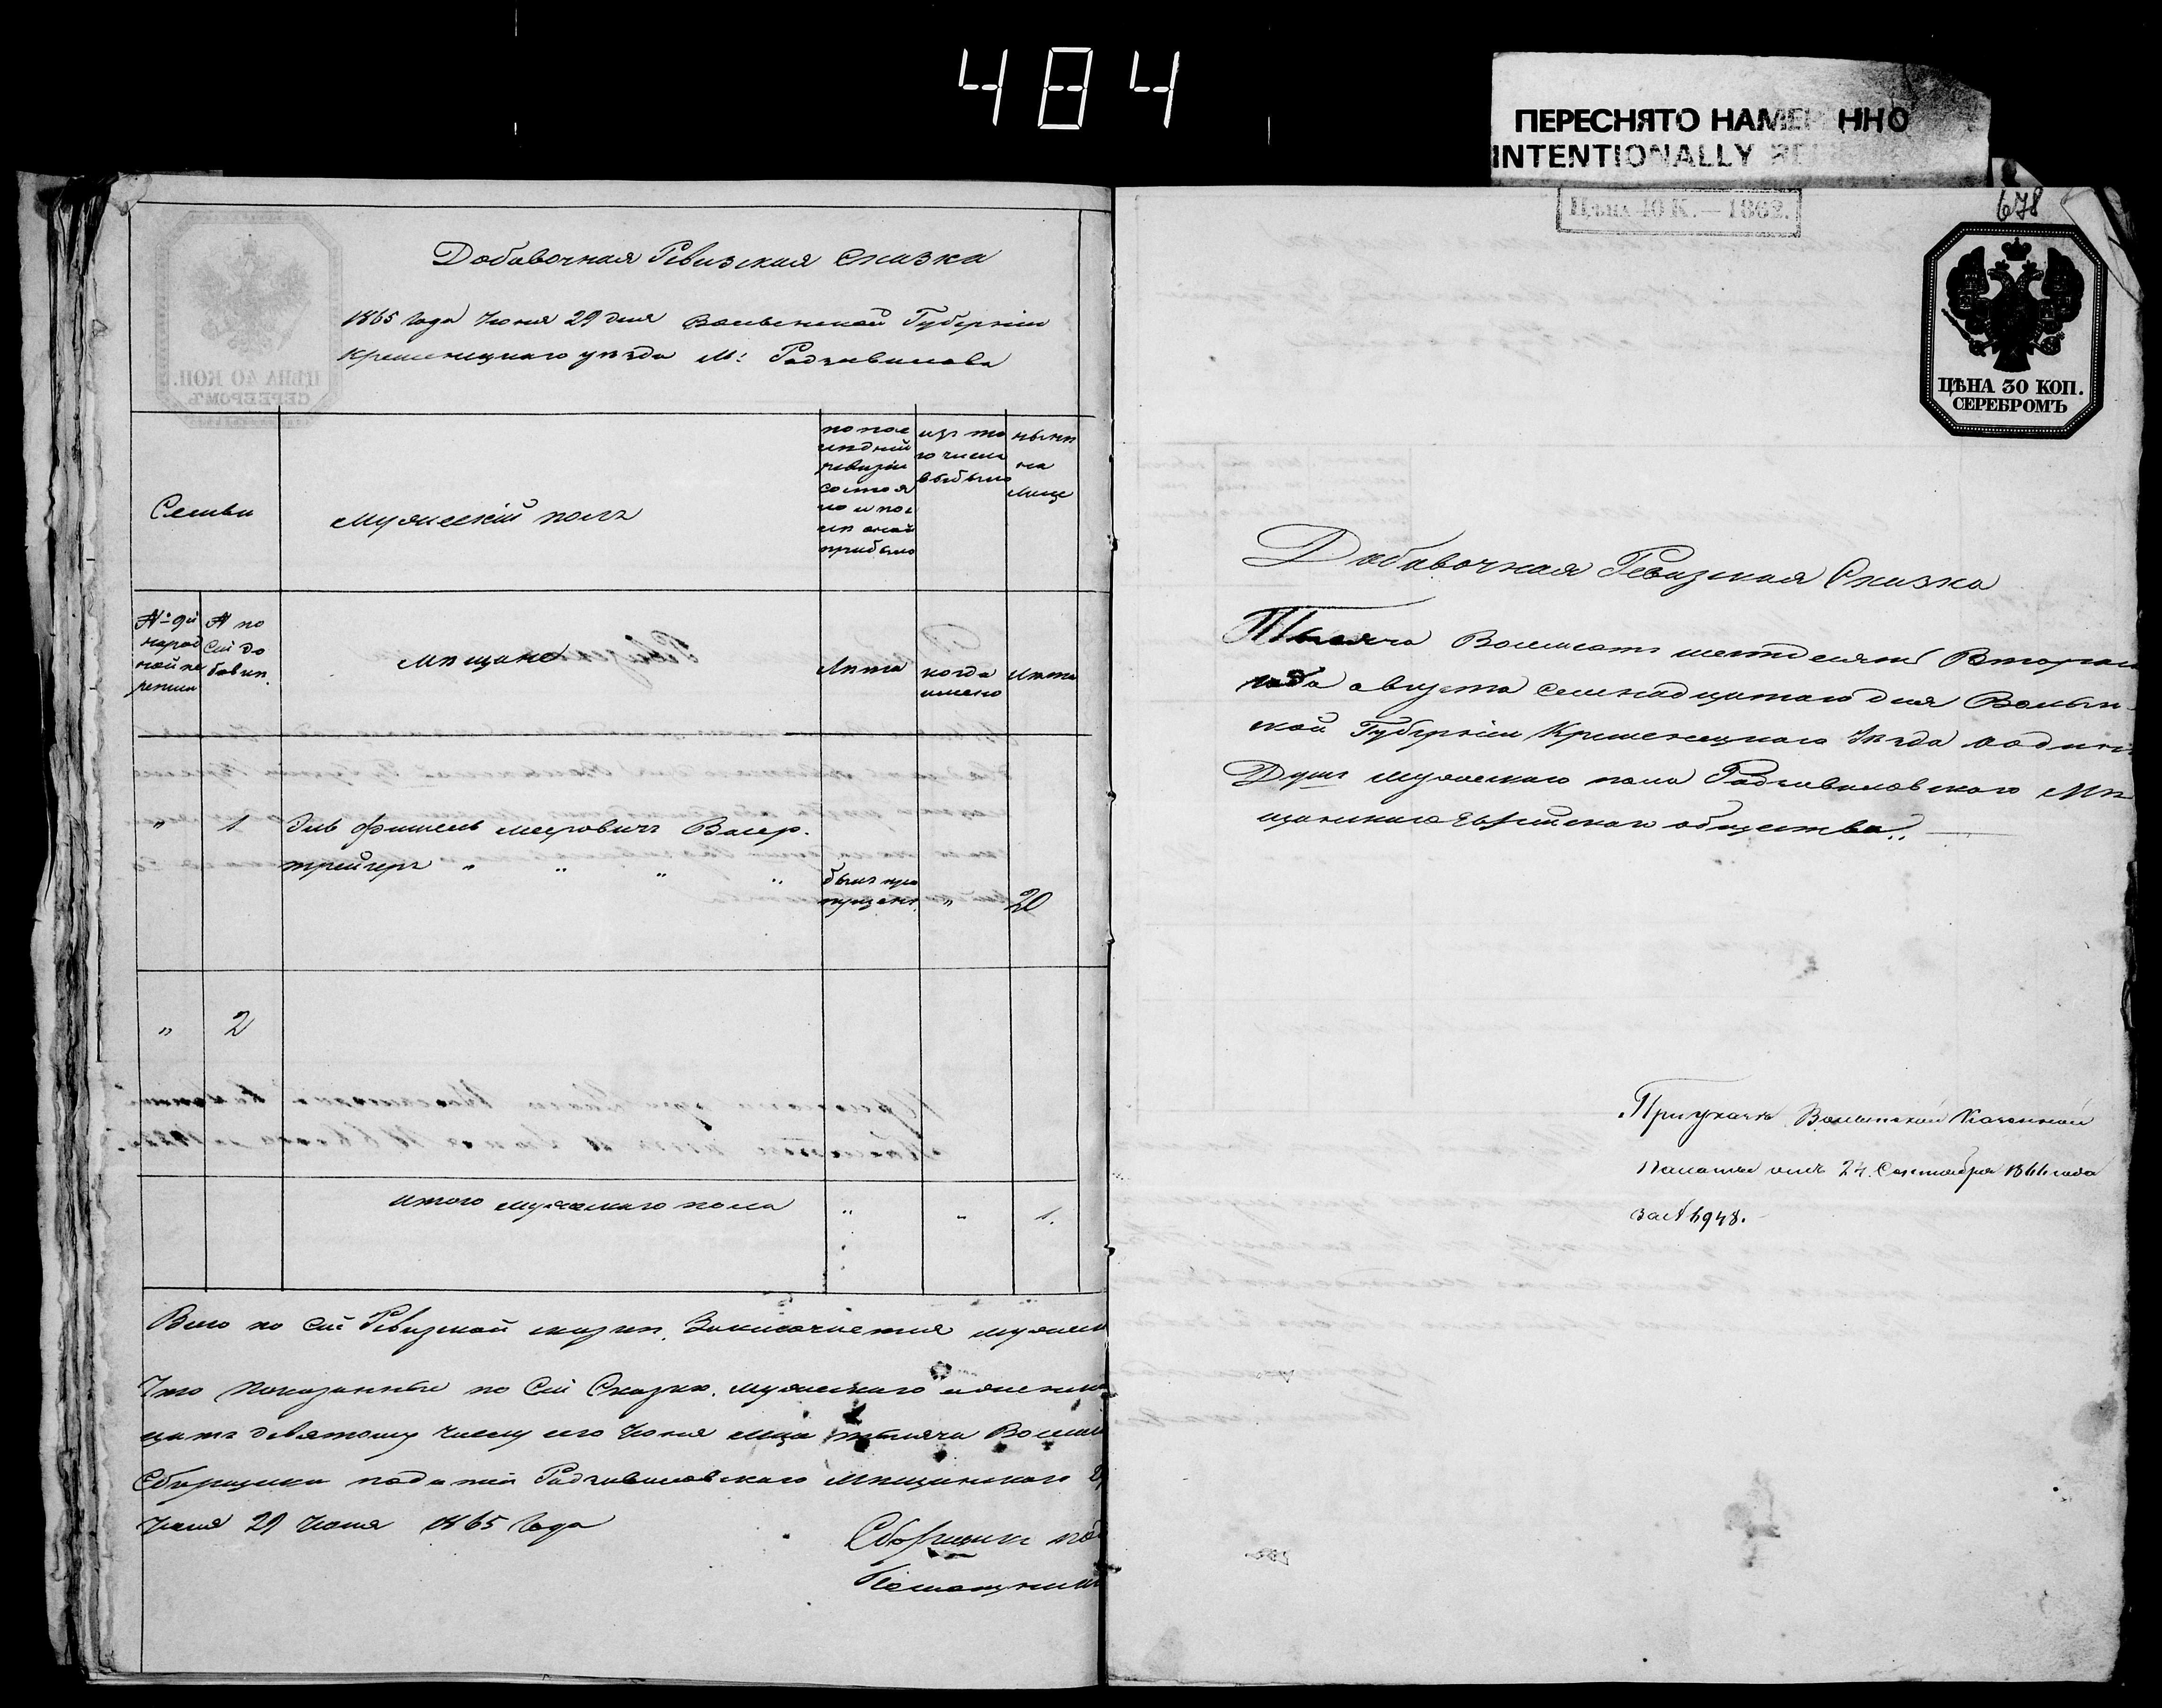 484
ПЕРЕСНЯТО НАМЕР ННО
INTENTIONALLY
Цѣна 40 К. — 1862.
678
ЦѢНА 40 КОП.
СЕРЕБРОМЪ
Добавочная Ревизская Сказка
1865 года Июня 29 дня Волынской Губерніи
Кременецкаго уѣзда М: Радзивилова
Семьи
Мужескій полъ
по пос
лѣдней
ревизіи
состоя
ло и пос
лѣ оной
прибыло
изъ то
го числа
выбыло
нынѣ
на
лице
№ 9й
народ
ной пе
реписи
№ по
сей до
бавоч.
Мѣщане
Лѣта
когда
именно
Лѣта
" 1 Эль Фишель Меерович Васер.
трейгеръ " " " "
былъ про
пущенъ " 20
" 2
Итого мужескаго пола " " 1.
Всего по сей Ревизской сказкѣ. Заключается мужеск
Что показанные по сей Сказкѣ. мужескаго и женска
цать девятому числу его Июня мца тысяча Восем
Сборщика податей Радзивиловскаго Мѣщанскаго
Июня 29 Июня 1865 Года
Сборщикъ под
Помощник
ЦѢНА 30 КОП.
СЕРЕБРОМЪ
Добавочная Ревизская Сказка
Тысяча Восемсотъ шестдесятъ Втораго
года августа семнадцатаго дня Волын-
ской Губерніи Кременецкаго Уѣзда
Душ мужескаго пола Радзивиловскаго Мѣ
щанскаго Еврейскаго общества.
При указѣ Волынской Казенной
Палаты отъ 24. Сентября 1866 года
за № 6948.